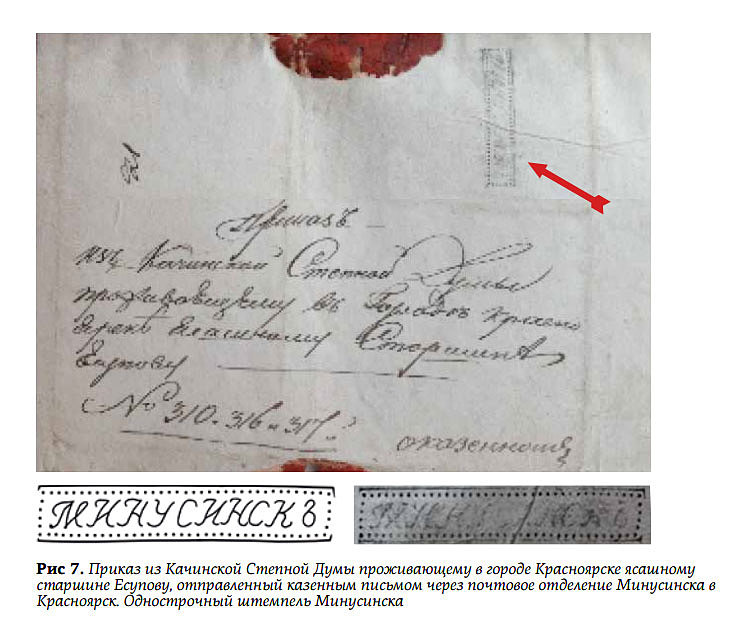 Приказъ
изъ Качинской Степной Думы
проживающему въ Городѣ Красно
ярскѣ ясашному Старшинѣ
Есупову
№ 310. 316 и 317.
МИНУСИНСКЪ
Рис 7. Приказ из Качинской Степной Думы проживающему в городе Красноярске ясашному
старшине Есупову, отправленный казенным письмом через почтовое отделение Минусинска в
Красноярск. Однострочный штемпель Минусинска